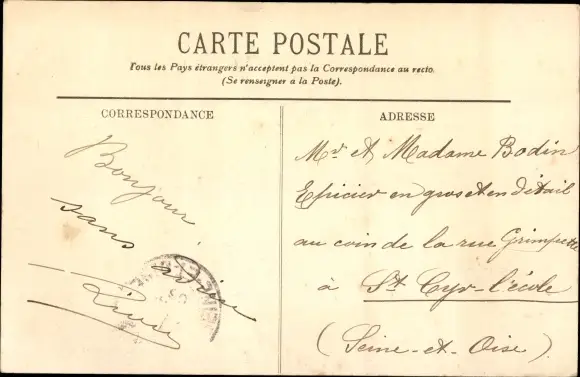 CARTE POSTALE
Tous les Pays étrangers n'acceptent pas la Correspondance au recto.
(Se renseigner à la Poste).
CORRESPONDANCE
Bonjour
sans
ADRESSE
Mr et Madame Bodin
Epicier en gros et en détail
au coin de la rue Grimpette
à St Cyr-l'école
(Seine-et-Oise)